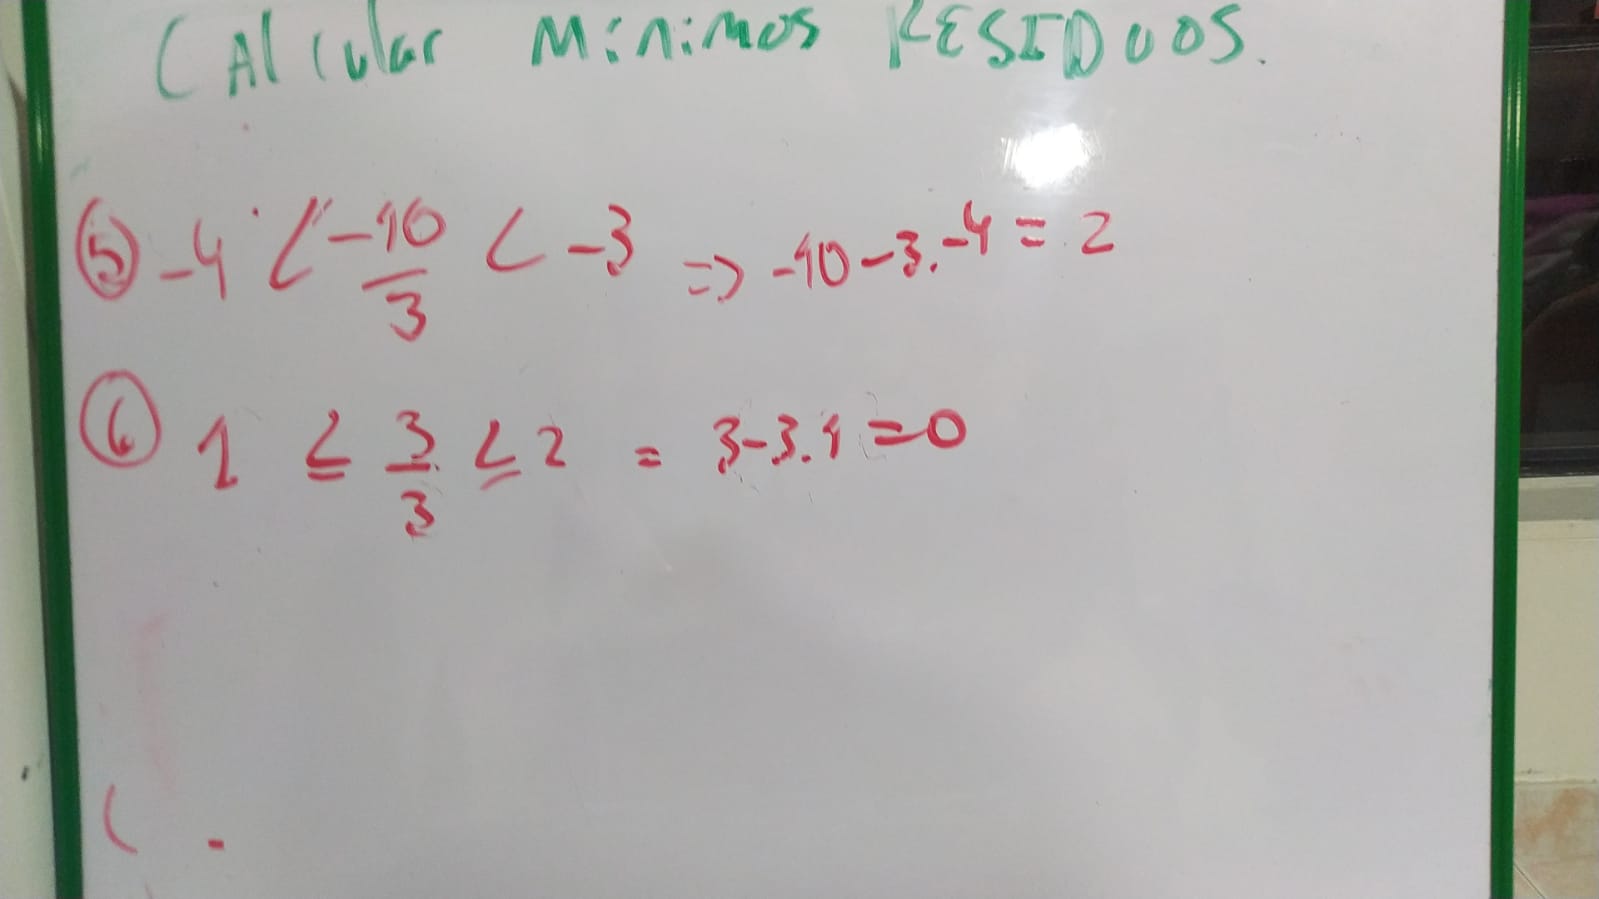 CAlcular Mínimos RESIDUOS.
⑤ -4 < -10/3 < -3 => -10-3.-4 = 2
⑥ 1 ≤ 3/3 ≤ 2 = 3-3.1=0
( -